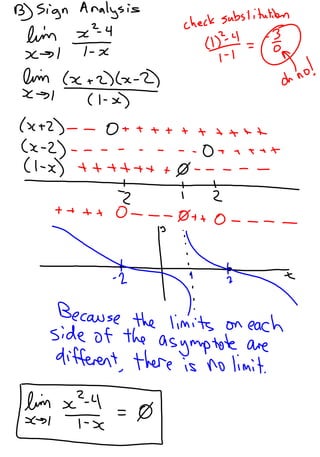 B) Sign Analysis
lim x→1 x²-4 / 1-x
check substitution
(1)²-4 / 1-1 = -3/0
oh no!
lim x→1 (x+2)(x-2) / (1-x)
(x+2) - - O + + + + + + + + +
(x-2) - - - - - - - - O + + + +
(1-x) + + + + + + ∅ - - - - -
-2 1 2
+ + + + O - - - ∅ + + O - - - -
-2 1 2
Because the limits on each
side of the asymptote are
different, there is no limit.
lim x→1 x²-4 / 1-x = ∅